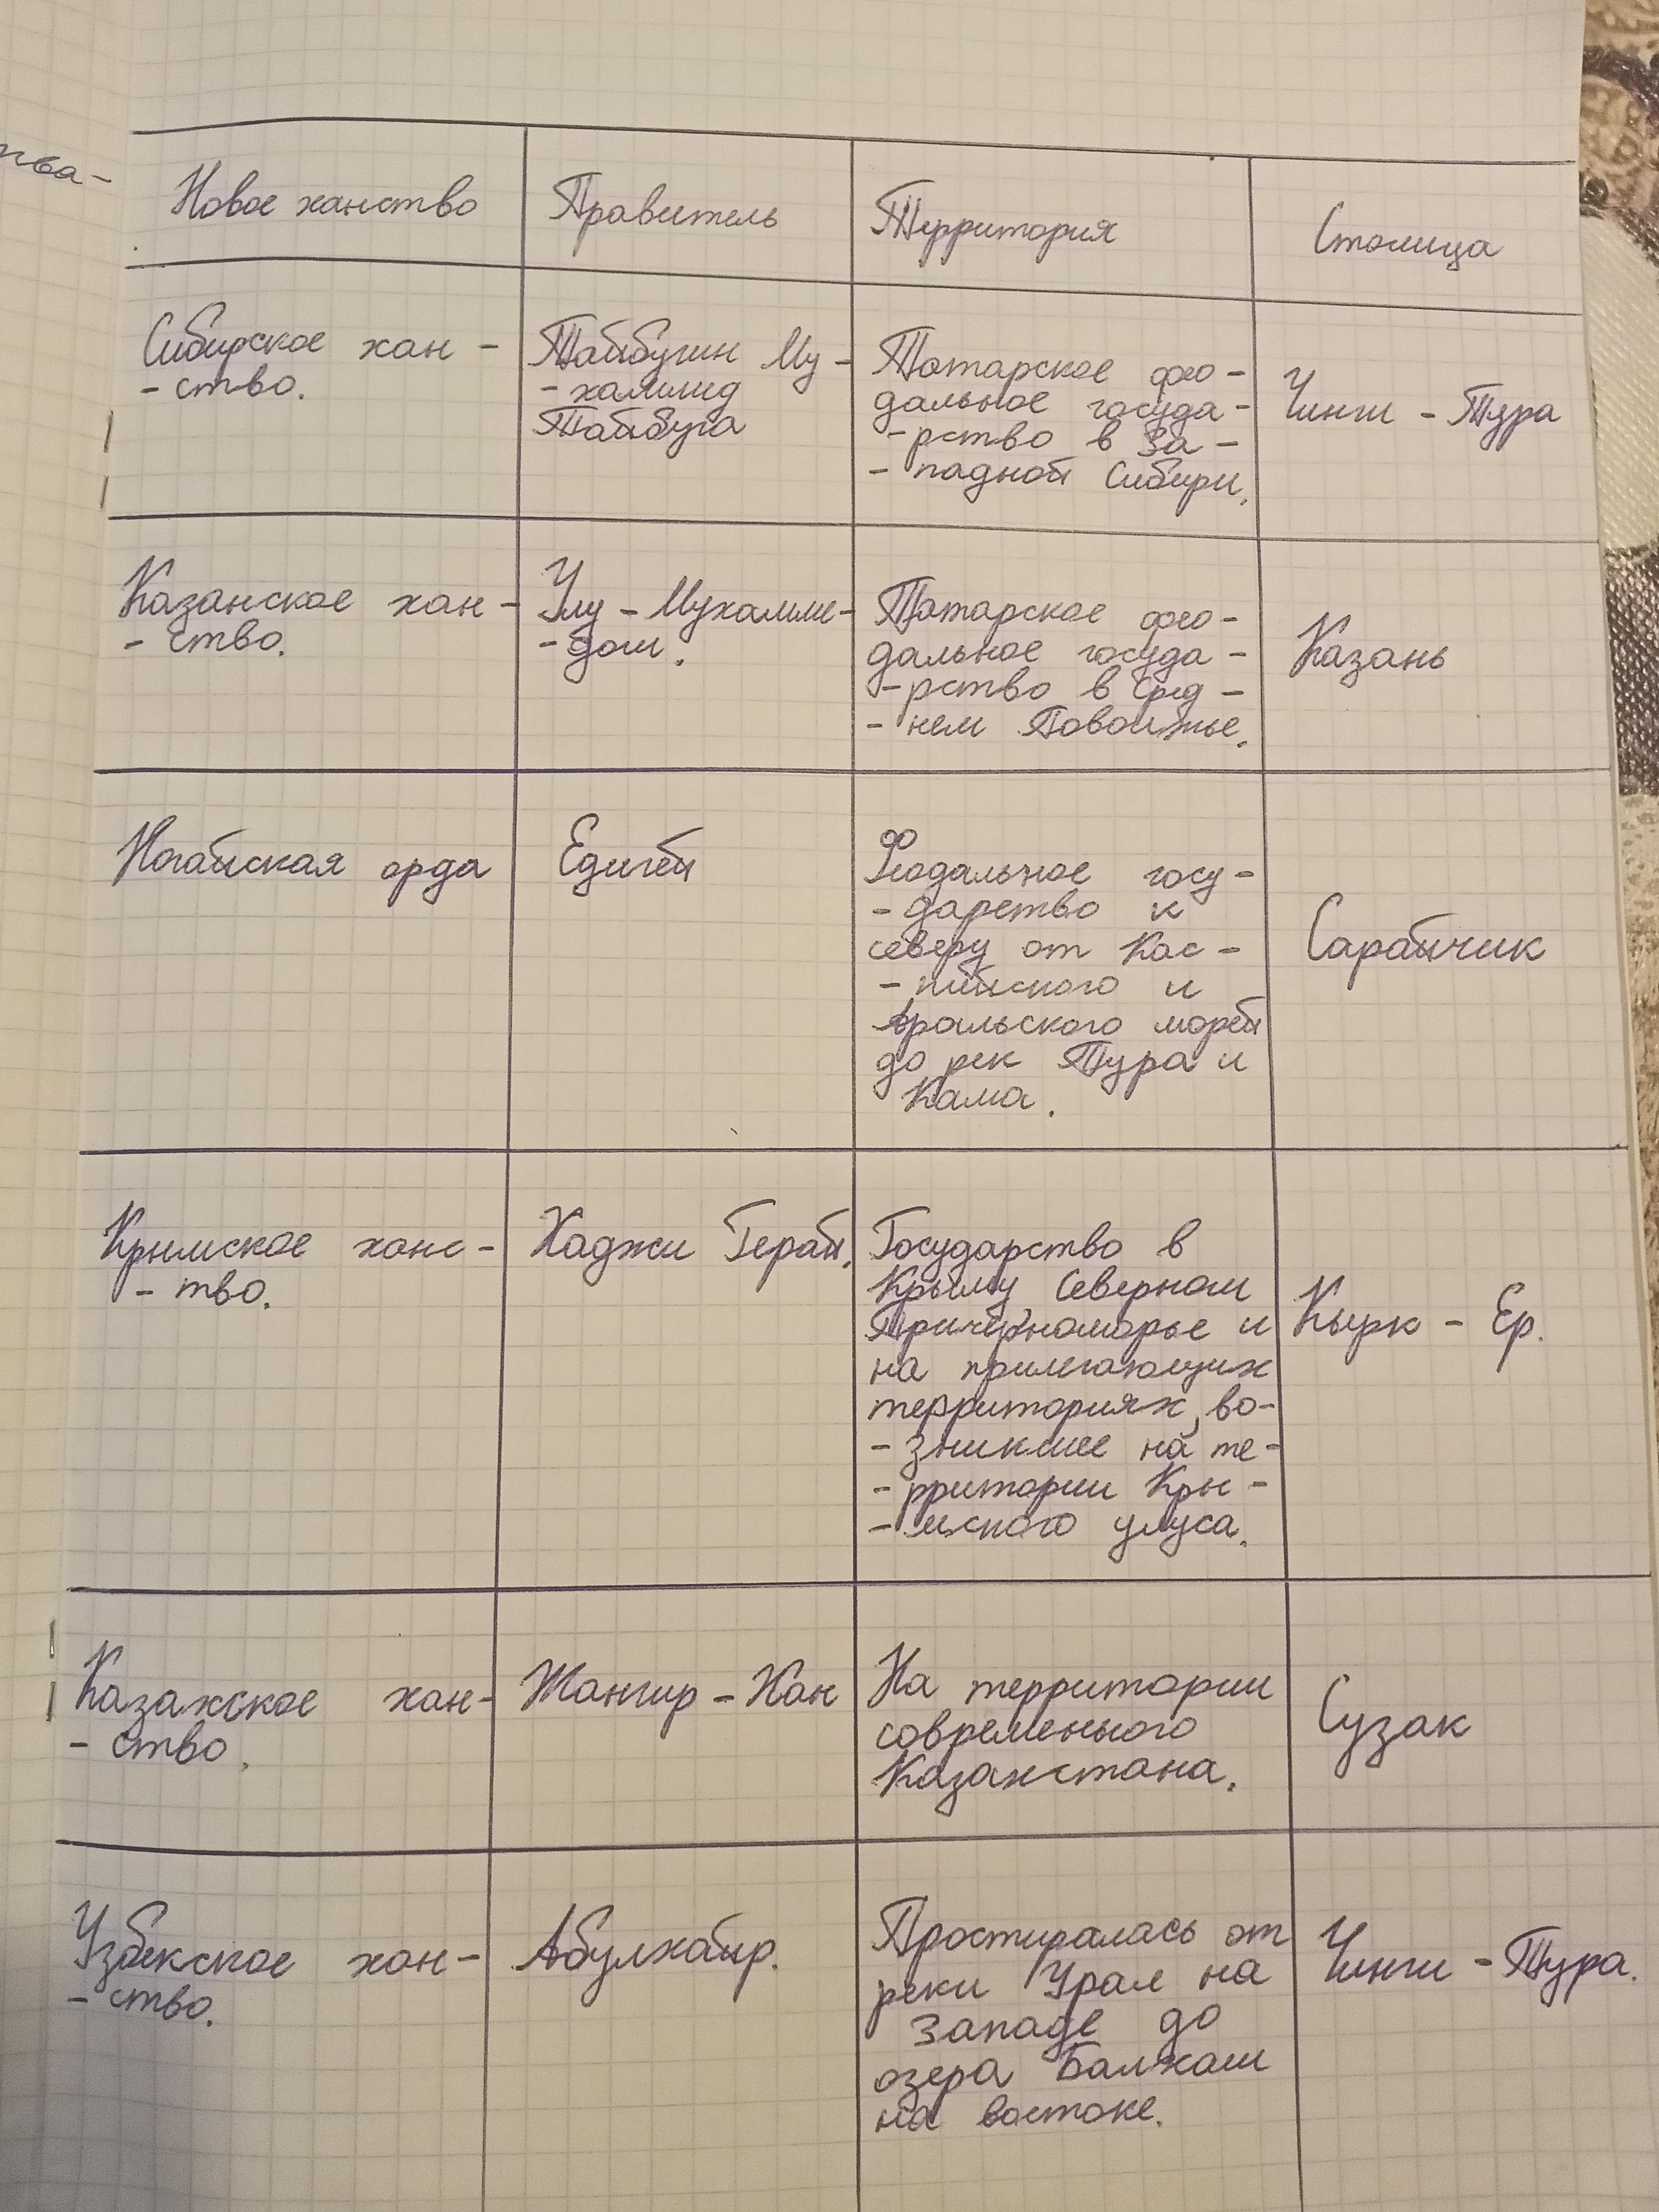 Новое ханство
Правитель
Территория
Столица
Сибирское хан -
- ство.
Тайбугин Му -
- хаммид
Тайбуга
Татарское фео -
дальное госуда -
- рство в За -
- падной Сибири.
Чинги - Тура
Казанское хан -
- ство.
Улу - Мухамме-
- дом.
Татарское фео -
дальное госуда -
- рство в Сред -
- нем Поволжье.
Казань
Ногайская орда
Едигей
Феодальное госу -
- дарство к
северу от Кас -
- пийского и
Аральского морей
до рек Тура и
Кама.
Сарайчик
Крымское ханс -
- тво.
Хаджи Герай.
Государство в
Крыму Северном
Причерноморье и
на прилегающих
территориях, во-
- зникшее на те -
- рритории Кры -
- мского улуса.
Кырк - Ер.
Казахское хан-
- ство.
Жангир - Хан
На территории
современого
Казахстана.
Сузак
Узбекское хан -
- ство.
Абулхаир.
Простиралась от
реки Урал на
западе до
озера Балхаш
на востоке.
Чинги - Тура.